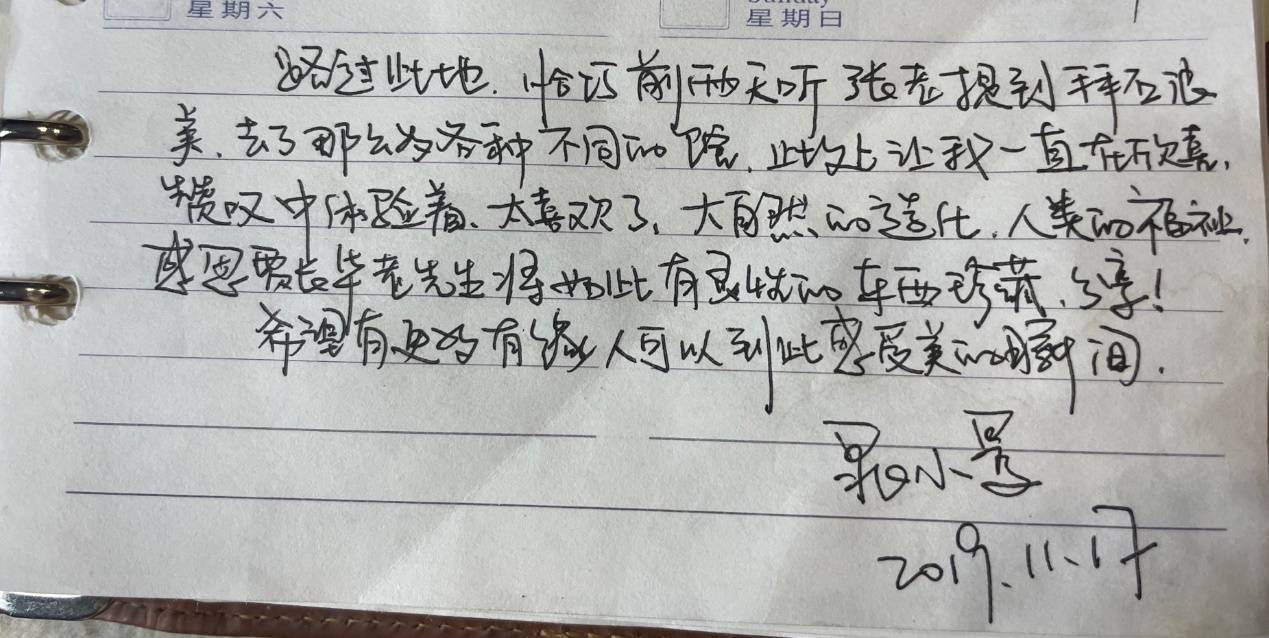 星期六
星期日
路过此地.恰巧前两天听张老提到拜石浪
美.去了那么多各种不同的馆.此处让我一直在欣喜.
赞叹中体验着.太喜欢了.大自然的造化.人类的福祉.
感恩贾长华老先生将如此有灵性的东西珍藏.分享!
希望有更多有缘人可以到此感受美的瞬间.
2019.11.17